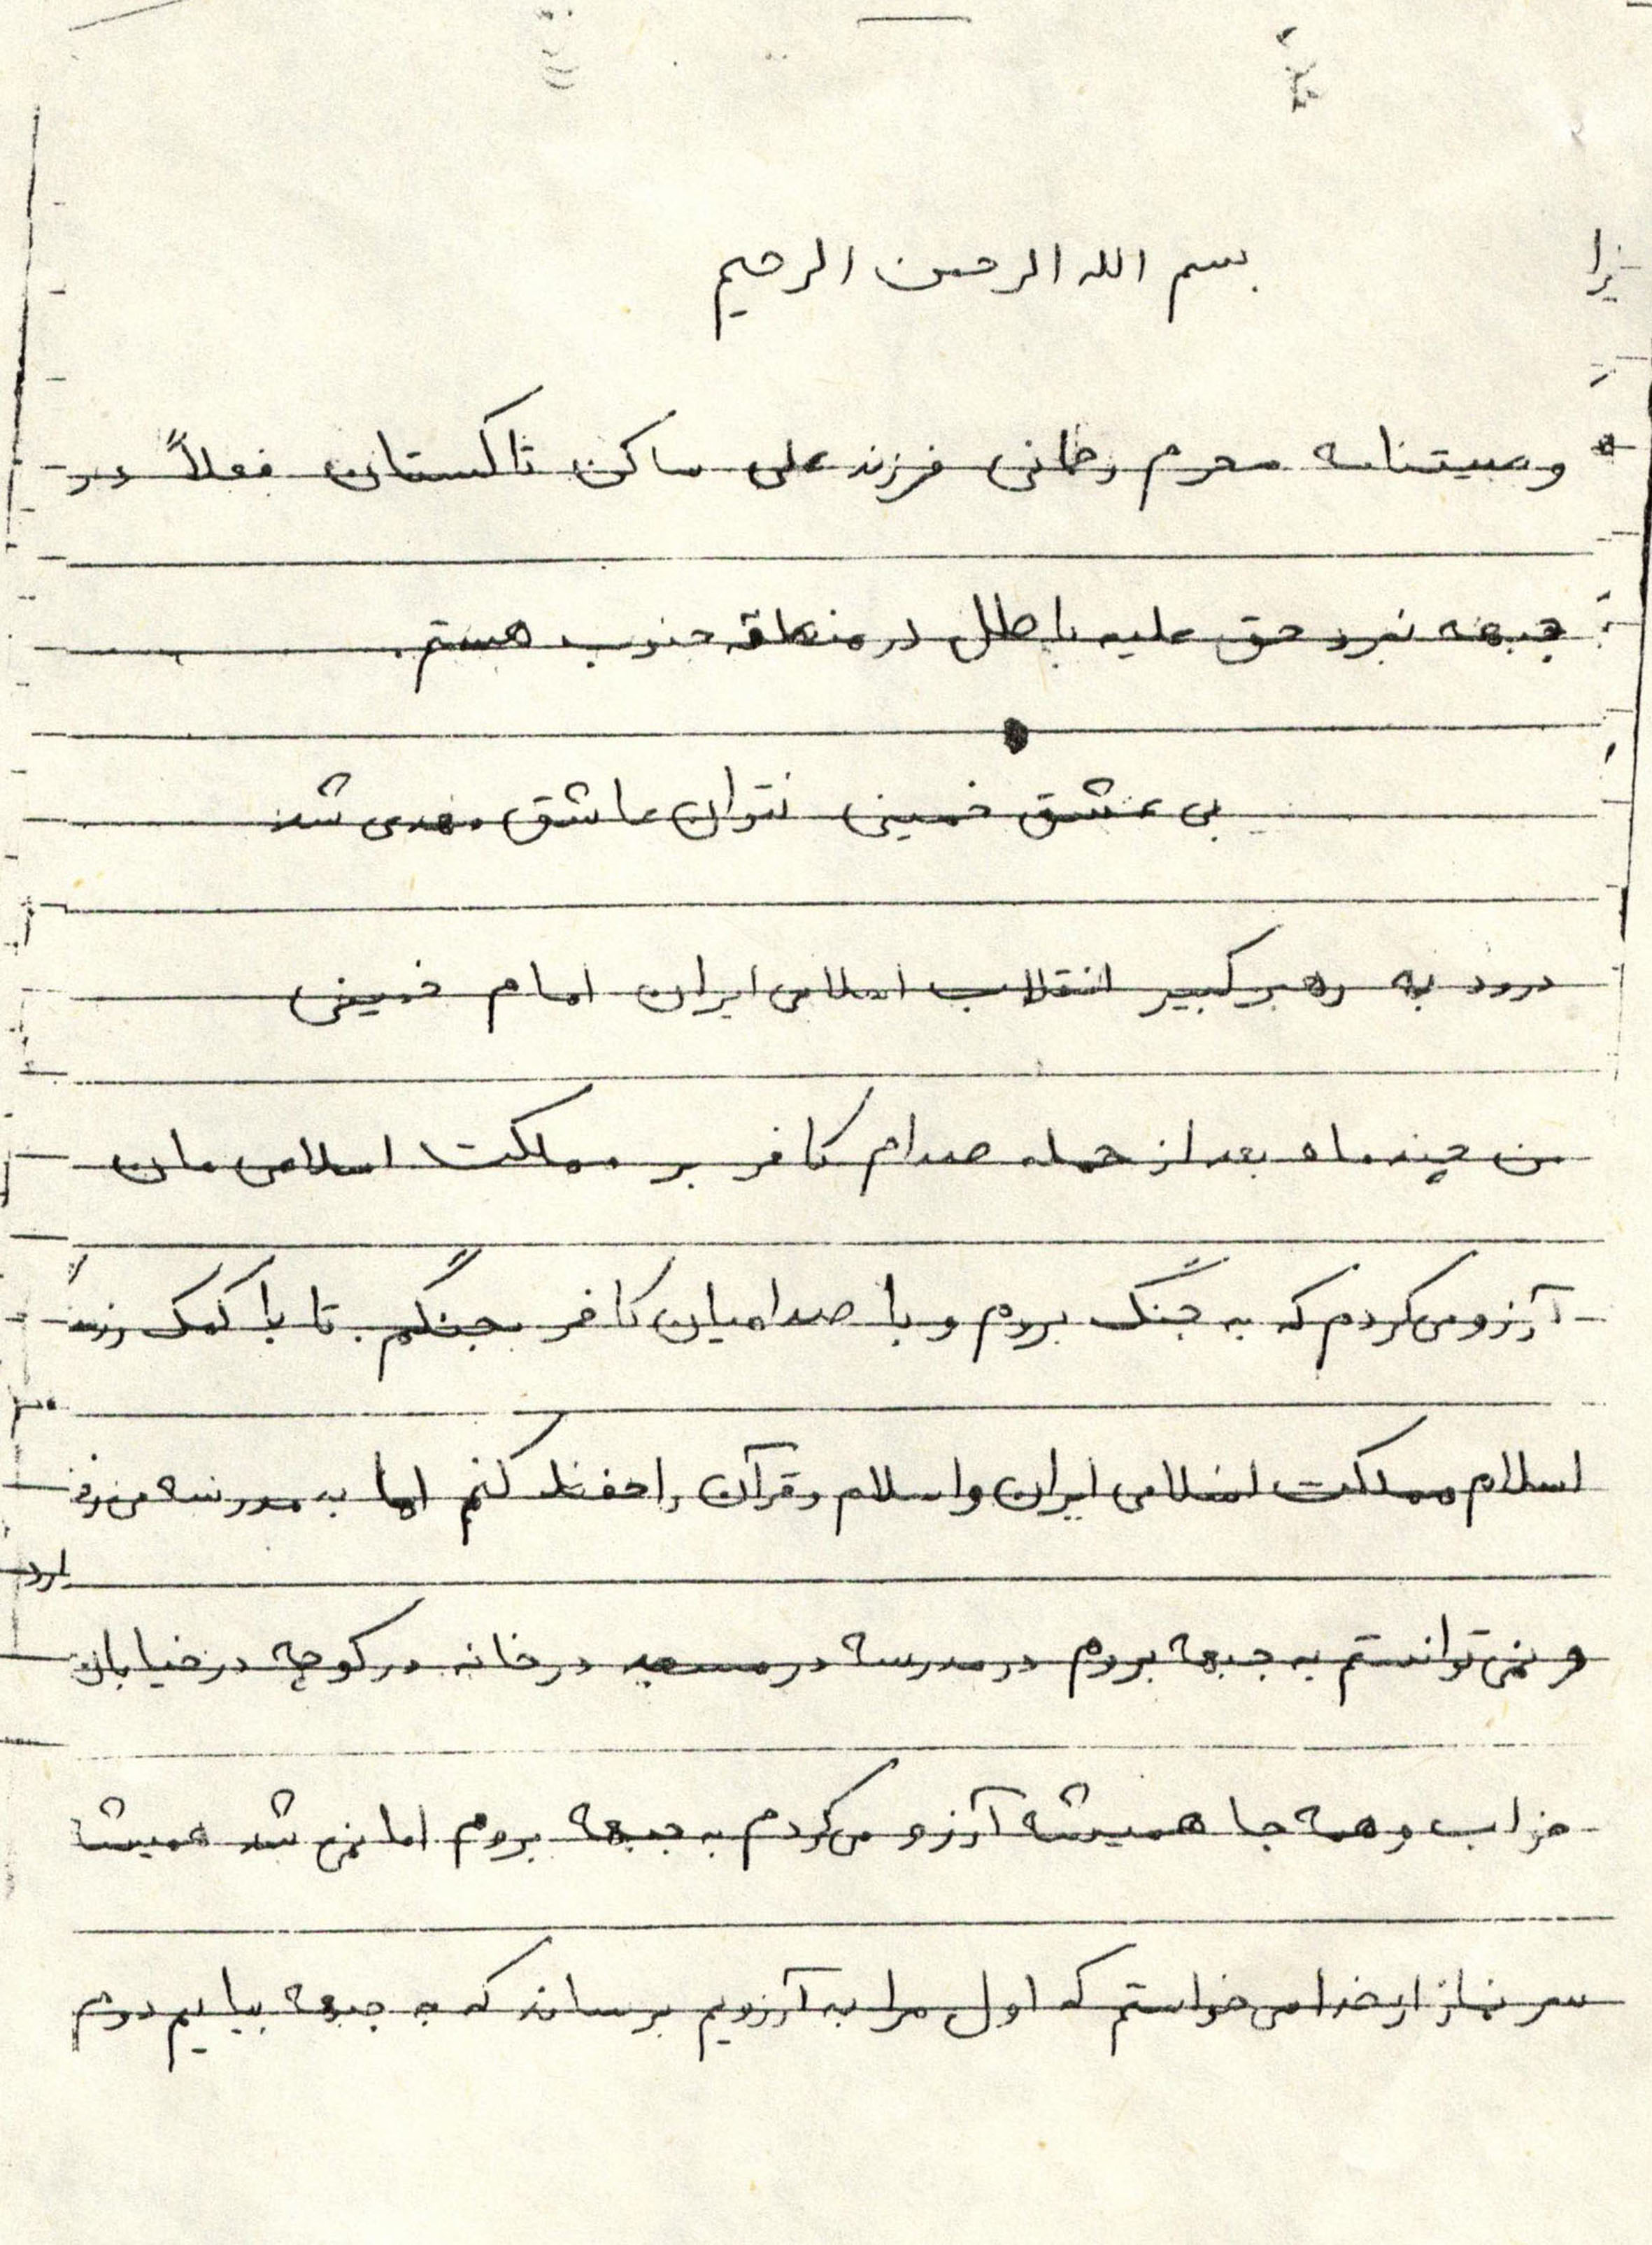 بسم الله الرحمن الرحیم
وصیتنامه محرم رحمانی فرزند علی ساکن تاکستان فعلاً در
جبهه نبرد حق علیه باطل در منطقه جنوب هستم.
بی عشق خمینی نتوان عاشق مهدی شد
درود به رهبر کبیر انقلاب اسلامی ایران امام خمینی
من چند ماه بعد از حمله صدام کافر بر مملکت اسلامی مان
آرزو می کردم که به جنگ بروم و با صدامیان کافر بجنگم تا با کمک
اسلام مملکت اسلامی ایران و اسلام و قرآن را حفظ کنم اما به مدرسه
و نمی توانستم به جبهه بروم در مدرسه در مسجد در خانه در کوچه در خیابان
و همه جا همیشه آرزو می کردم به جبهه بروم اما نمی شد همیشه
سر نماز از خدا می خواستم که اول مرا به آرزویم برساند که به جبهه بیایم دوم